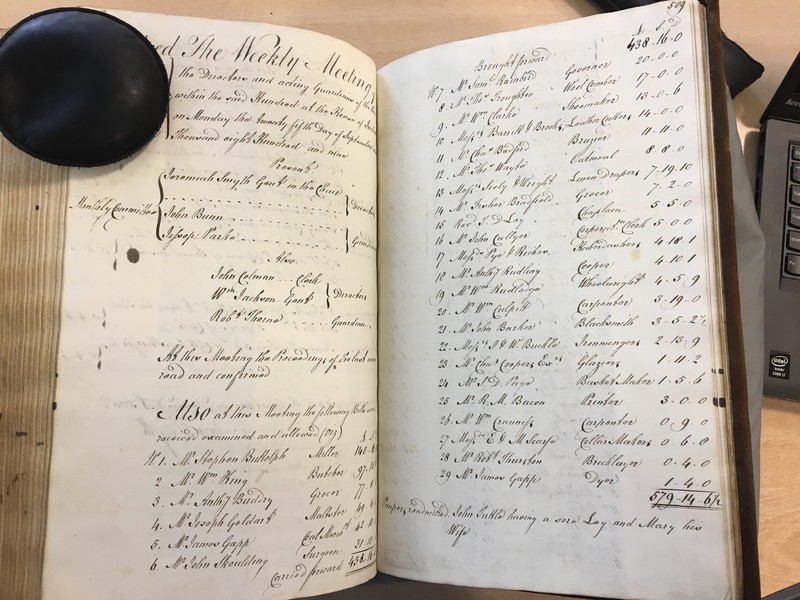 The Weekly Meeting
the Directors and acting Guardians of the
within the said Hundred at the House of
on Monday the twenty fifth Day of September
Thousand eight Hundred and nine
Present
Jeremiah Smyth Gent in the Chair
Directors
Monthly Committee
John Bunn
Jessop Parke
Guardians
Also
John Colman Clerk
Wm Jackson Gent
Directors
Robt Thorne Guardian
At this Meeting the Proceedings of the last were
read and confirmed
Also at this Meeting the following Bills were
received examined and allowed (viz)
No 1. Mr Stephen Buttolph Miller
2 Mr Wm King Butcher
3. Mr Anthy Buddry Grocer
4. Mr Joseph Goldart Maltster
5. Mr James Gapp Coal Mercht
6. Mr John Skoulding Surgeon
Carried forward
509
£ s d
Brought forward 438-16-0
No 7. Mr Saml Rainbird Governor 20-0-0
8. Mr Thos Troughton Wool Comber 17-0-0
9. Mr Wm Clarke Shoemaker 13-0-6
10 Messrs Barrett & Brook Leather Cutters 14-0-0
11 Mr Chas Badger Brazier 11-11-0
12 Mr Thos Wayte Oatmeal 8-8-0
13 Messrs Sealy & Wright Linen Drapers 7-19-10
14 Mr Fisher Bradfield Grocer 7-2-0
15 Revd T. D Lay Chaplain 5-5-0
16 Mr John Cullyer Corporatn Clerk 5-0-0
17 Messrs Pye & Haberdashers 4-18-1
18 Mr Anthy Rudling Cooper 4-10-1
19 Mr Wm Wheelwright 4-5-9
20 Mr Wm Culpitt Carpenter 3-19-0
21. Mr John Barker Blacksmith 3-5-2½
22 Messrs J & W Buckle Ironmongers 2-13-9
23 Mr Chas Coopers Exrs Glaziers 1-11-2
24 Mr Page Basket Maker 1-5-6
25 Mr R. M. Bacon Printer 3-0-0
26. Mr Wm Cranniss Carpenter 0 9 0
27 Messrs E & M Scarfe Collar Makers 0-6-8
28 Mr Robt Thurston Bricklayer 0-4-0
29 Mr James Gapp Dyer 1-4-0
579-14-6½
Paupers readmitted John Tuttle having a sore Leg and Mary his
Wife
intel
inside
CORE i7